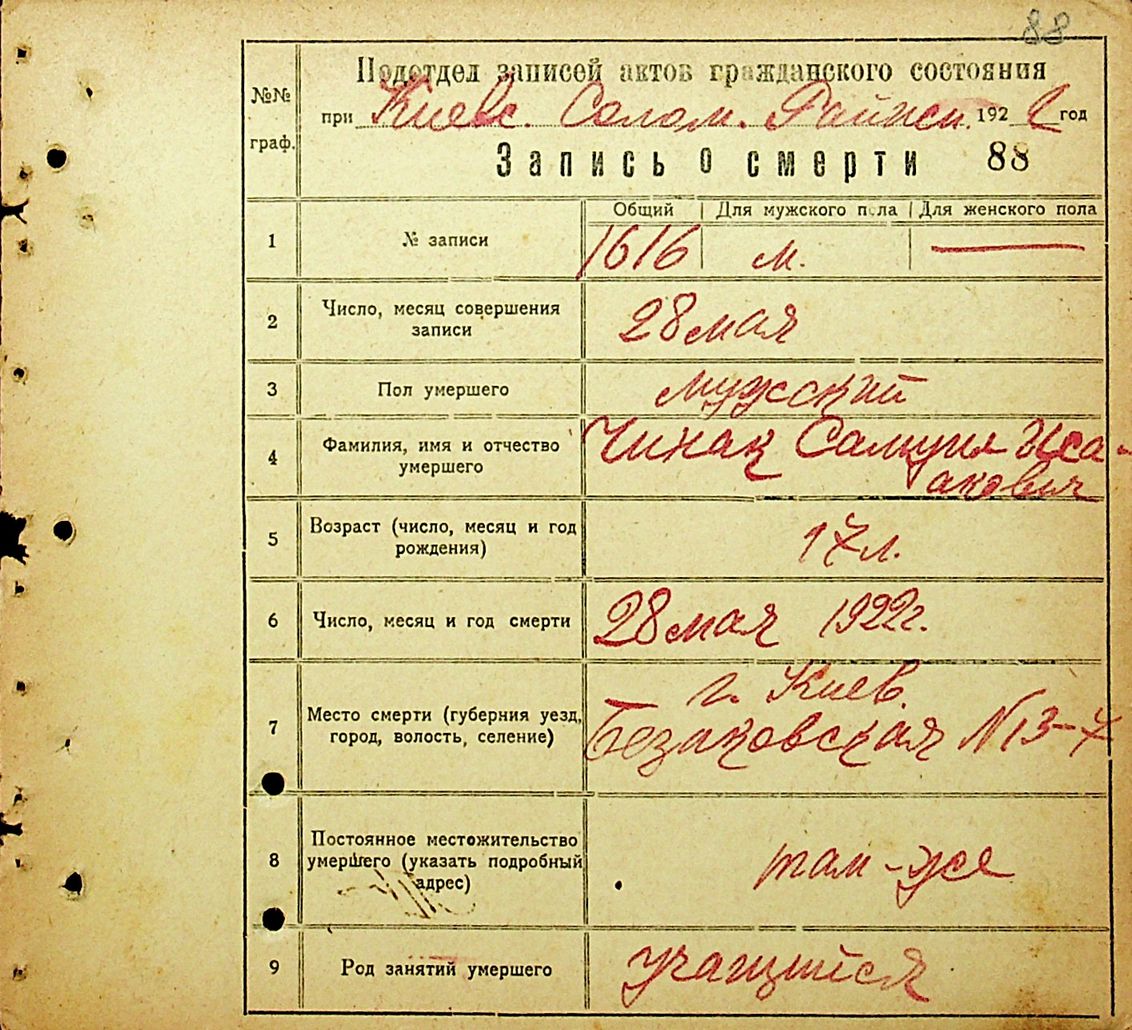 88
Подотдел записей актов гражданского состояния
№№ граф.
при Киевс. Солом. Райисп. 1922 год
Запись о смерти 88
Общий | Для мужского пола | Для женского пола
1 № записи 1616 м. —
2 Число, месяц совершения
записи
28 мая
3 Пол умершего мужской
4 Фамилия, имя и отчество
умершего
Чихак Самуил Иса-
акович
5 Возраст (число, месяц и год
рождения)
17 л.
6 Число, месяц и год смерти 28 мая 1922 г.
7 Место смерти (губерния уезд,
город, волость, селение)
г. Киев.
Безаковская № 13-7
8 Постоянное местожительство
умершего (указать подробный
адрес)
там-же
9 Род занятий умершего учащийся